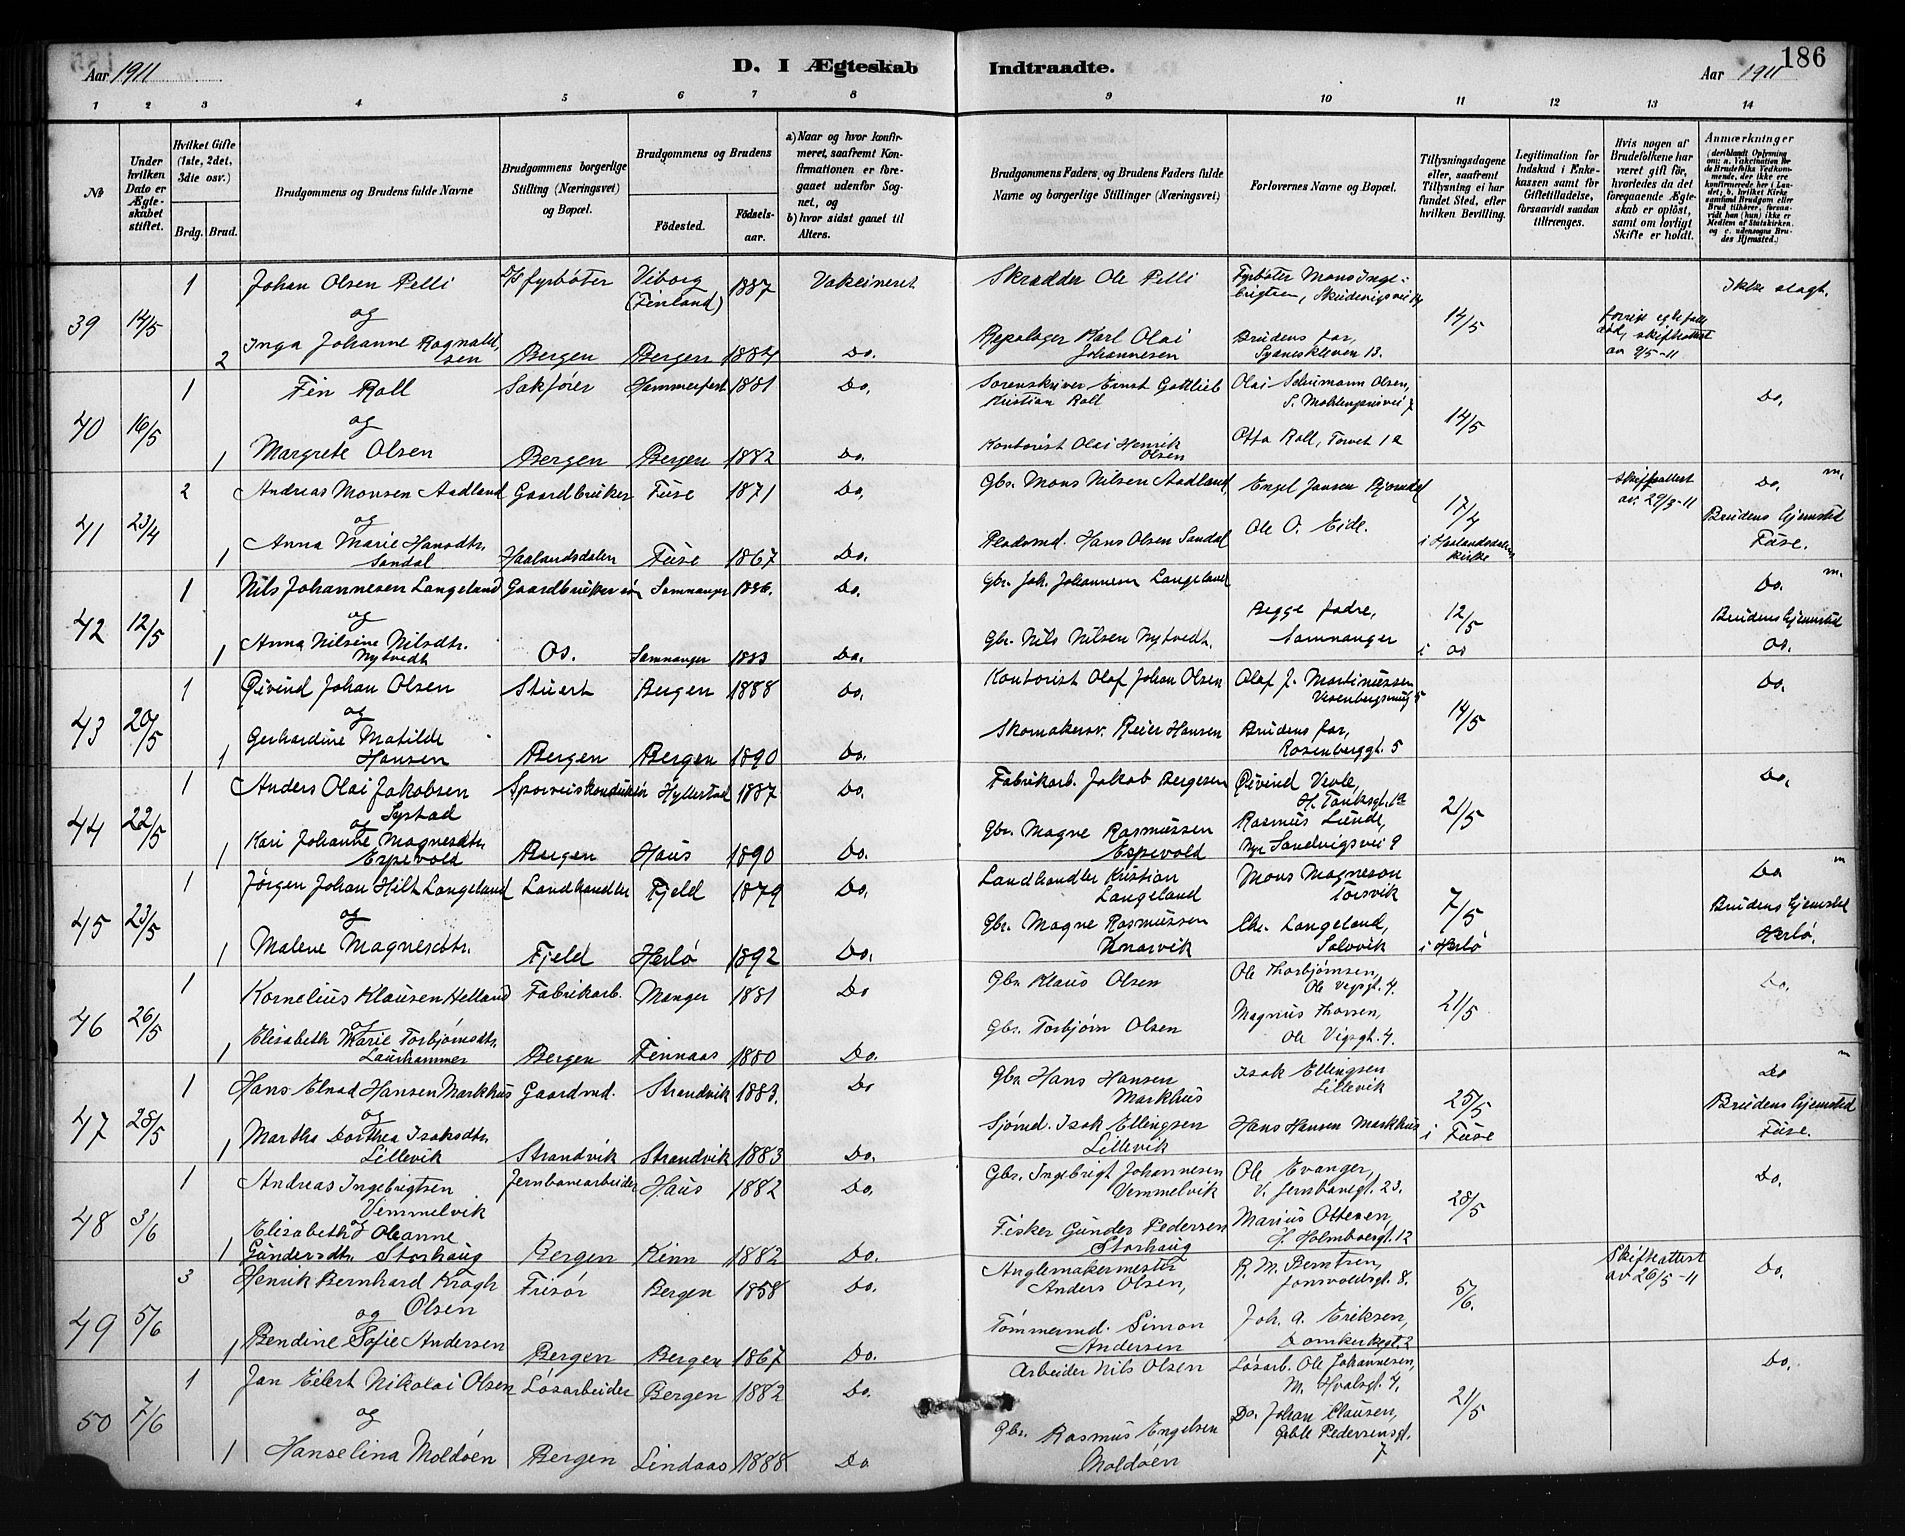 186
Aar 1911
D. I Ægteskab
Indtraadte.
Aar 1911
1 2 3 4 5 6 7 8 9 10 11 12 13 14
No
Under hvilken Dato er Ægteskabet stiftet.
Hvilket Gifte (1ste, 2det, 3die osv.)
Brdg. Brud.
Brudgommens og Brudens fulde Navne
Brudgommens borgerlige Stilling (Næringsvei) og Bopæl.
Brudgommens og Brudens
Födested.
Födselsaar.
a) Naar og hvor konfirmeret, saafremt Konfirmationen er foregaaet udenfor Sognet, og
b) hvor sidst gaaet til Alters.
Brudgommens Faders, og Brudens Faders fulde Navne og borgerlige Stillinger (Næringsvei)
Forlovernes Navne og Bopæl.
Tillysningsdagene eller, saafremt Tillysning ei har fundet Sted, efter hvilken Bevilling.
Legitimation for Indskud i Enkekassen samt for Giftetilladelse, forsaavidt saadan tiltrænges.
Hvis nogen af Brudefolkene har været gift för, hvorledes da det foregaaende Ægteskab er oplöst, samt om lovligt Skifte er holdt.
Anmærkninger
39 14/5
1 Johan Olsen Pelli D/S fyrbøter Viborg (Finland) 1887 Vakcineret Skrædder Ole Pelli Fyrbøter Mons Ingebrigtsen, 14/5 Ikke slagt.
og
2 Inga Johanne Ragnaldsen Bergen Bergen 1884 Do. Repslager Karl Olai Johannesen Brudens far, 13. skifteattest av 9/5-11
40 16/5
1 Fin Roll Sakfører Hammerfest 1881 Do. Sorenskriver Ernst Gottlieb Kristian Roll Olai Schumann Olsen, S. Møhlenprisvei 7 14/5 Do.
og
1 Margrete Olsen Bergen Bergen 1882 Do. Kontorist Olai Henrik Olsen Otto Roll, Torvet 1a
41 23/4
2 Andreas Monsen Aadland Gaardbruker Fuse 1871 Do. Gbr. Mons Nilsen Aadland Engel Jansen 17/4 i Haalandsdalen kirke Skifteattest av 29/3-11 Do. m.
og
1 Anna Marie Hansdtr. Sandal Haalandsdalen Fuse 1867 Do. Hans Olsen Sandal Ole O. Eide. Brudens hjemsted Fuse.
42 12/5
1 Nils Johannesen Langeland Gaardbrukersøn Samnanger 1886. Do. Gbr. Joh. Johannesen Langeland Begge fædre, Samnanger 12/5 i Os Do. m.
og
1 Anna Nilsine Nilsdtr. Nytvedt Os. Samnanger 1883 Do. Gbr. Nils Nilsen Nytvedt. Brudens hjemsted Os.
43 20/5
1 Øivind Johan Olsen Stuert Bergen 1888 Do. Kontorist Olaf Johan Olsen Olaf J. Martinussen 14/5 Do.
og
1 Gerhardine Matilde Hansen Bergen Bergen 1890 Do. Skomakersv. Reier Hansen Brudens far, Rosenberggt. 5
44 22/5
1 Anders Olai Jakobsen Systad Sporveiskonduktør Hyllestad 1887 Do. Fabrikarb. Jakob Bergesen Øivind Vevle, H. Tanksgt. 1a 21/5 Do.
og
1 Kari Johanne Magnesdtr. Espevold Bergen Haus 1890 Do. Gbr. Magne Rasmussen Espevold Rasmus Lunde, Nye Sandvigsvei 9
45 23/5
1 Jørgen Johan Hilt Langeland Landhandler Fjeld 1879 Do. Landhandler Kristian Langeland Mons Magneson Torsvik 7/5 i Herlø Do m
og
1 Malene Magnesdtr. Fjeld Herlø 1892 Do. Gbr. Magne Rasmussen Knarvik Chr. Langeland, Solvvik Brudens hjemsted Herlø.
46 26/5
1 Kornelius Klausen Helland Fabrikarb. Manger 1881 Do Gbr. Klaus Olsen Ole Thorbjørnsen, Ole Vigsgt. 4. 21/5 Do.
og
1 Elisabeth Marie Torbjørnsdtr. Laurhammer Bergen Finnaas 1880 Do. Gbr. Torbjørn Olsen Magnus Thorsen, Ole Vigsgt. 4.
47 28/5
1 Hans Elnad Hansen Markhus Gaardmd. Strandvik 1883. Do Gbr. Hans Hansen Markhus Isak Ellingsen Lillevik 25/5 i Fuse Do m
og
1 Martha Dorthea Isaksdtr. Lillevik Strandvik Strandvik 1883 Do. Sjømd. Isak Ellingsen Lillevik Hans Hansen Markhus Brudens hjemsted Fuse.
48 3/6
1 Andreas Ingebrigtsen Vemmelvik Jernbanearbeider Haus 1882 Do. Gbr. Ingebrigt Johannesen Vemmelvik Ole Evanger, V. Jernbanegt. 23. 28/5 Do.
og
1 Elisabeth Oleanne Gundersdtr. Storhaug Bergen Kinn 1882 Do. Fisker Gunder Pedersen Storhaug Marius Ottesen, J. Holmboesgt. 12
49 5/6
3 Henrik Bernhard Krogh Olsen Frisør Bergen 1858 Do. Anglemakermester Anders Olsen, R. M. Berntsen, Jonsvoldsgt. 8. 5/6. Skifteattest av 26/5-11 Do.
og
1 Bendine Sofie Andersen Bergen Bergen 1867 Do. Tømmermd. Simon Andersen Joh. A. Eriksen, Domkirkegt. 2
50 7/6
1 Jan Eilert Nikolai Olsen Løsarbeider Bergen 1882 Do. Arbeider Nils Olsen Løsarb. Ole Johannesen, M. Hvalsgt. 4. 21/5 Do.
og
1 Hanselina Moldøen Bergen Lindaas 1888 Do Gbr. Rasmus Engelsen Moldøen Do. Johan Clausen, Gable Pedersensgt. 7